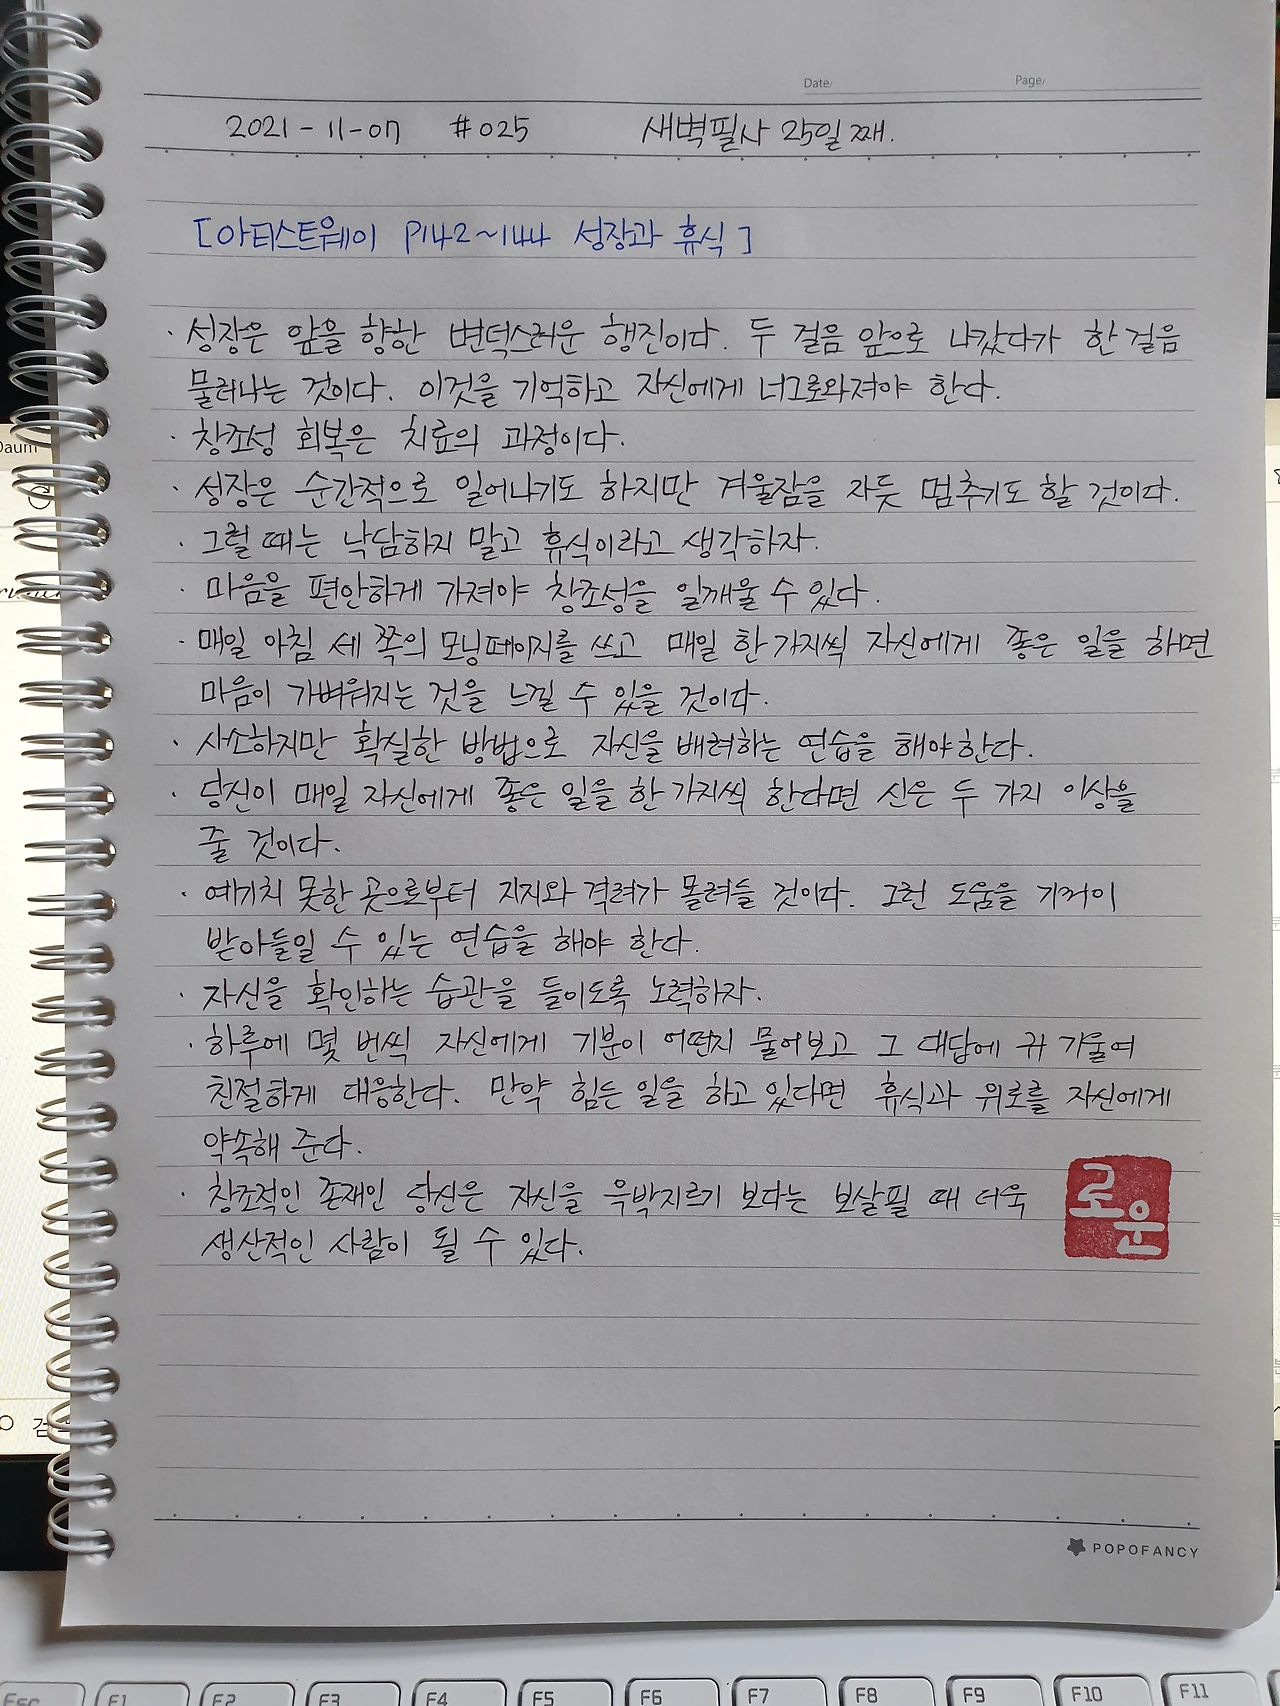 Date/ Page/
2021-11-07 #025 새벽필사 25일째.
[아티스트웨이 P142~144 성장과 휴식]
· 성장은 앞을 향한 변덕스러운 행진이다. 두 걸음 앞으로 나갔다가 한 걸음
물러나는 것이다. 이것을 기억하고 자신에게 너그로와져야 한다.
· 창조성 회복은 치료의 과정이다.
· 성장은 순간적으로 일어나기도 하지만 겨울잠을 자듯 멈추기도 할 것이다.
· 그럴 때는 낙담하지 말고 휴식이라고 생각하자.
· 마음을 편안하게 가져야 창조성을 일깨울 수 있다.
· 매일 아침 세 쪽의 모닝페이지를 쓰고 매일 한 가지씩 자신에게 좋은 일을 하면
마음이 가벼워지는 것을 느낄 수 있을 것이다.
· 사소하지만 확실한 방법으로 자신을 배려하는 연습을 해야한다.
· 당신이 매일 자신에게 좋은 일을 한 가지씩 한다면 신은 두 가지 이상을
줄 것이다.
· 예기치 못한 곳으로부터 지지와 격려가 몰려들 것이다. 그런 도움을 기꺼이
받아들일 수 있는 연습을 해야 한다.
· 자신을 확인하는 습관을 들이도록 노력하자.
· 하루에 몇 번씩 자신에게 기분이 어떤지 물어보고 그 대답에 귀 기울여
친절하게 대응한다. 만약 힘든 일을 하고 있다면 휴식과 위로를 자신에게
약속해 준다.
· 창조적인 존재인 당신은 자신을 윽박지르기 보다는 보살필 때 더욱
생산적인 사람이 될 수 있다.
로운
POPOFANCY
Daum
Esc F1 F2 F3 F4 F5 F6 F7 F8 F9 F10 F11